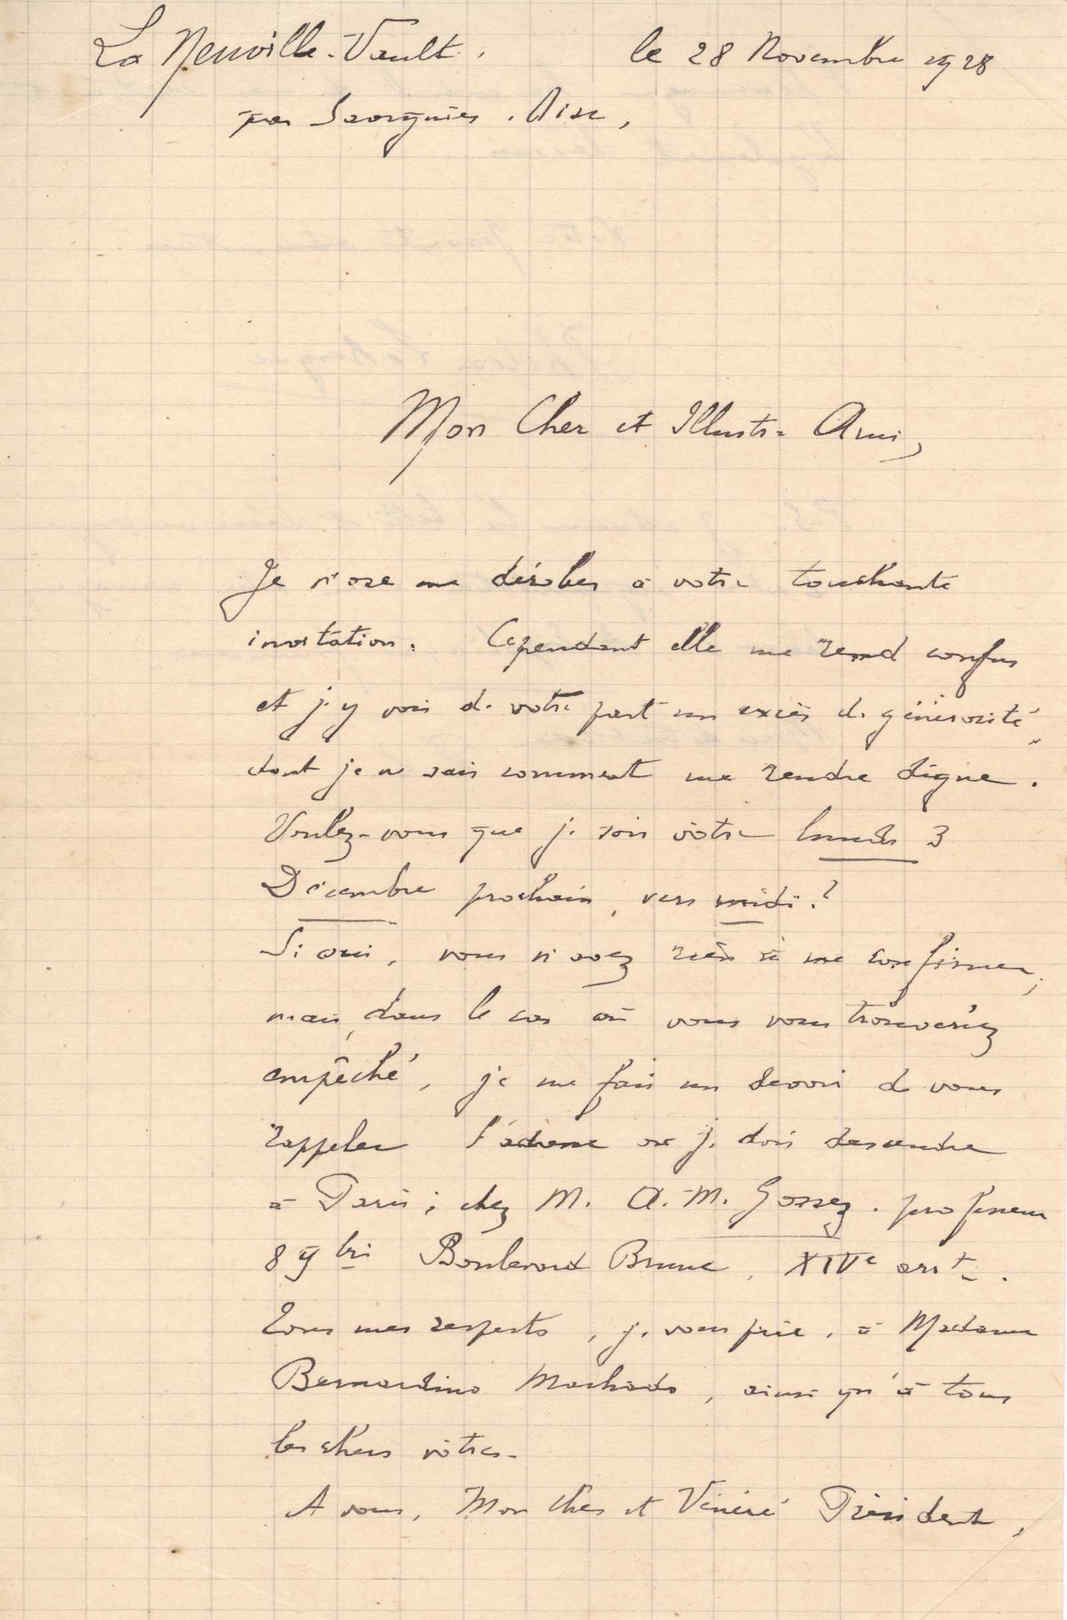 La Neuville-Vault. le 28 Novembre 1928
par Savignies. Oise,
Mon Cher et Illustre Ami,
Je n'ose me dérober à votre touchante
invitation. Cependant elle me rend confus
et j'y vois de votre part un excès de générosité,
dont je ne sais comment me rendre digne.
Voulez-vous que je sois vôtre lundi 3
Décembre prochain, vers midi?
Si oui, vous n'avez rien à me confirmer;
mais, dans le cas où vous vous trouveriez
empêché, je me fais un devoir de vous
rappeler l'adresse où je dois descendre
à Paris; chez M. A.-M. Gossez. professeur
89 bis Boulevard Brune, XIVe arrt.
Tous mes respects, je vous prie, à Madame
Bernardino Machado, ainsi qu'à tous
les chers vôtres.
A vous, Mon Cher et Vénéré Président,